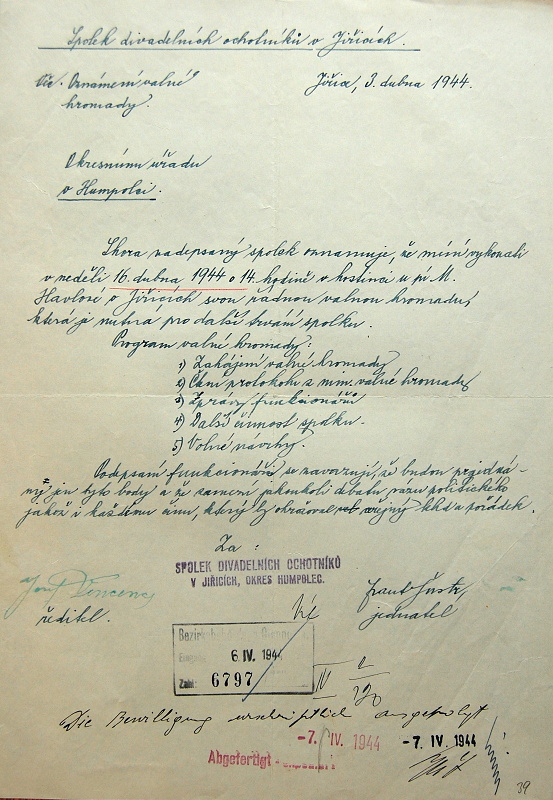 Spolek divadelních ochotníků v Jiřicích.
Věc. Oznámení valné
hromady.
Jiřice, 3. dubna 1944.
Okresnímu úřadu
v Humpolci.
Shora nadepsaný spolek oznamuje, že míní vykonati
v neděli 16. dubna 1944 o 14. hodině v hostinci u pí M.
Havlové v Jiřicích svou řádnou valnou hromadu,
která je nutná pro další trvání spolku.
Program valné hromady:
1) Zahájení valné hromady
2) Čtení protokolu z min. valné hromady
3) Zprávy funkcionářů
4) Další činnost spolku.
5) Volné návrhy.
Podepsaní funkcionáři se zavazují, že budou projedná-
ny jen tyto body a že zamezí jakoukoli debatu rázu politického
jakož i každému činu, který by ohrožoval veřejný klid a pořádek.
Za:
SPOLEK DIVADELNÍCH OCHOTNÍKŮ
V JIŘICÍCH, OKRES HUMPOLEC.
ředitel.
jednatel
Bezirks
6. IV. 1944
Zahl: 6797
Die Bewilligung
-7. IV. 1944
-7. IV. 1944
Abgefertigt
39